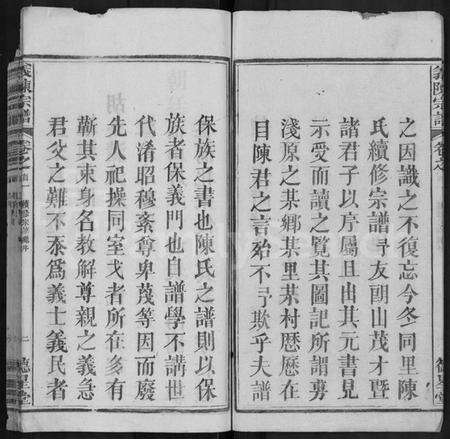 之因識之不復忘今冬同里陳
氏續修宗譜予友朗山茂才暨
諸君子以序屬且出其元書見
示受而讀之覽其圖記所謂
淺原之某鄉某里某村歷歷在
目陳君之言殆不予欺乎夫譜
義陳宗譜
保族之書也陳氏之譜則以保
族者保義門也自譜學不講世
代淆昭穆紊尊卑蔑等因而廢
先人祀操同室戈者所在多有
蘄其束身名教解尊親之義急
君父之難不忝爲義士義民者
義陳宗譜
德星堂